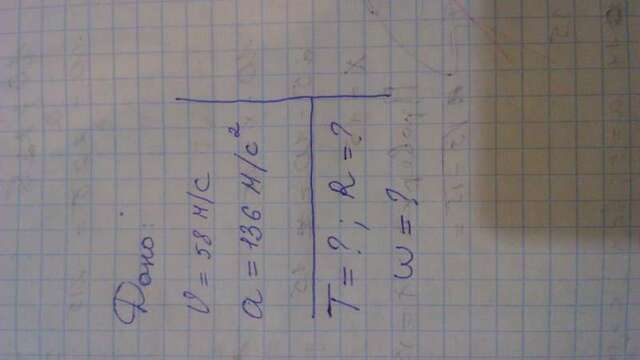 Дано:
υ = 58 м/с
a = 136 м/с²
T = ? ; R = ?
ω = ?